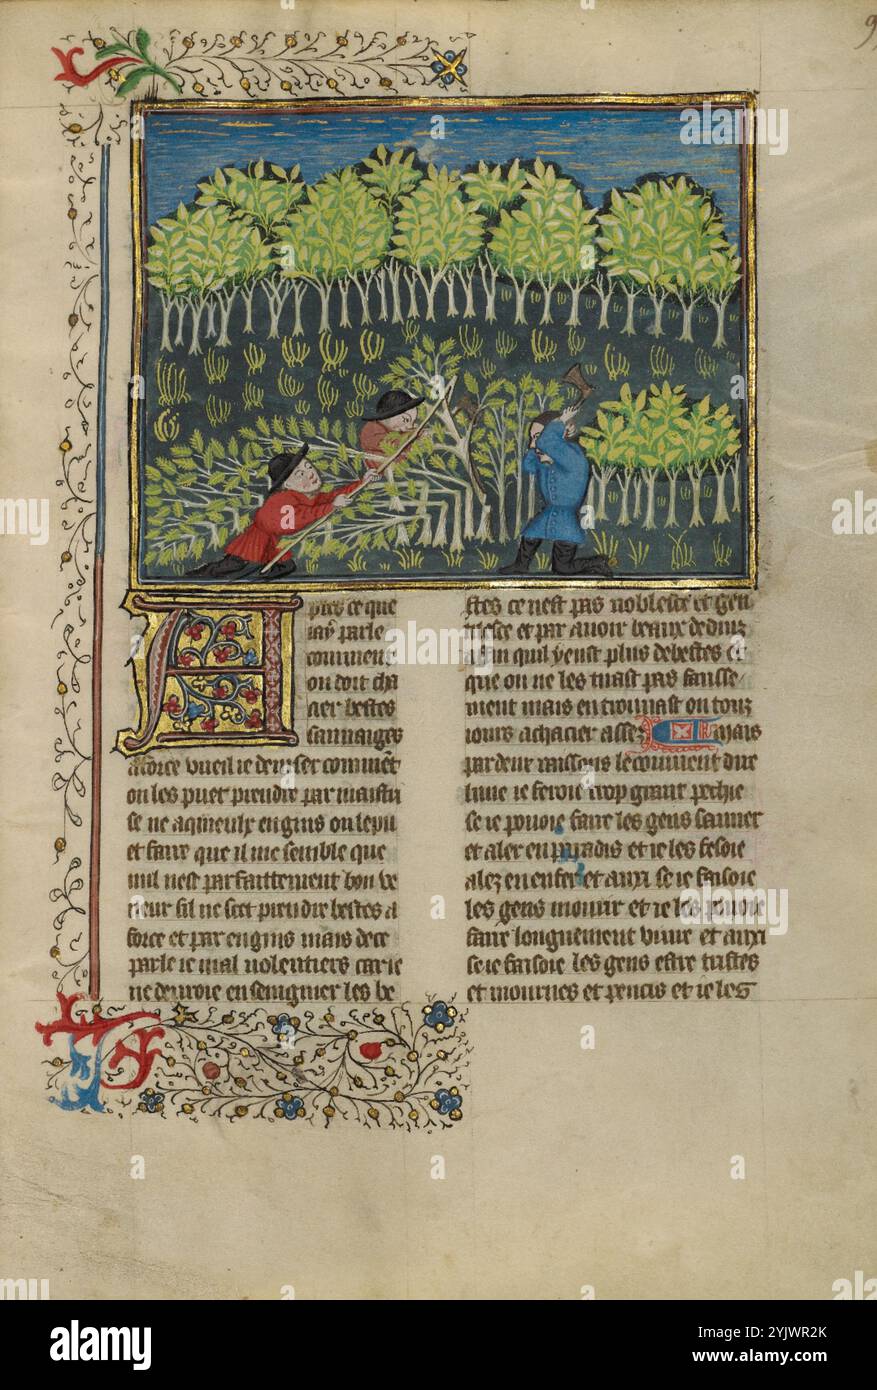 9
Apres ce que
iay parle
comment
on doit cha
cier bestes
sauuaiges
a force vueil ie deuiser comment
on les puet prendre par maistri
se ne aquieulx engins on le puet
et faire que il me semble que
nul nest parfaittement bon ve
neur sil ne scet prendre bestes a
force et par engins mais de ce
parle ie mal volentiers car ie
ne deuroie enseignier les be
stes ce nest pas noblesce et gen
tillesce et par auoir beaux deduiz
afin quil yeust plus de bestes et
que on ne les tuast pas faulse
ment mais en trouuast on touz
iours a chacier assez Mais
par deux raisons le couuient dire
lune ie feroie trop grant pechie
se ie pouoie faire les gens sauuer
et aler en paradis et ie les fesoie
alez en enfer et auxi se ie faisoie
les gens mourir et ie les pouoie
faire longuement viure et auxi
se ie faisoie les gens estre tristes
et mournes et pencis et ie les
alamy
Image ID: 2YJWR2K
www.alamy.com